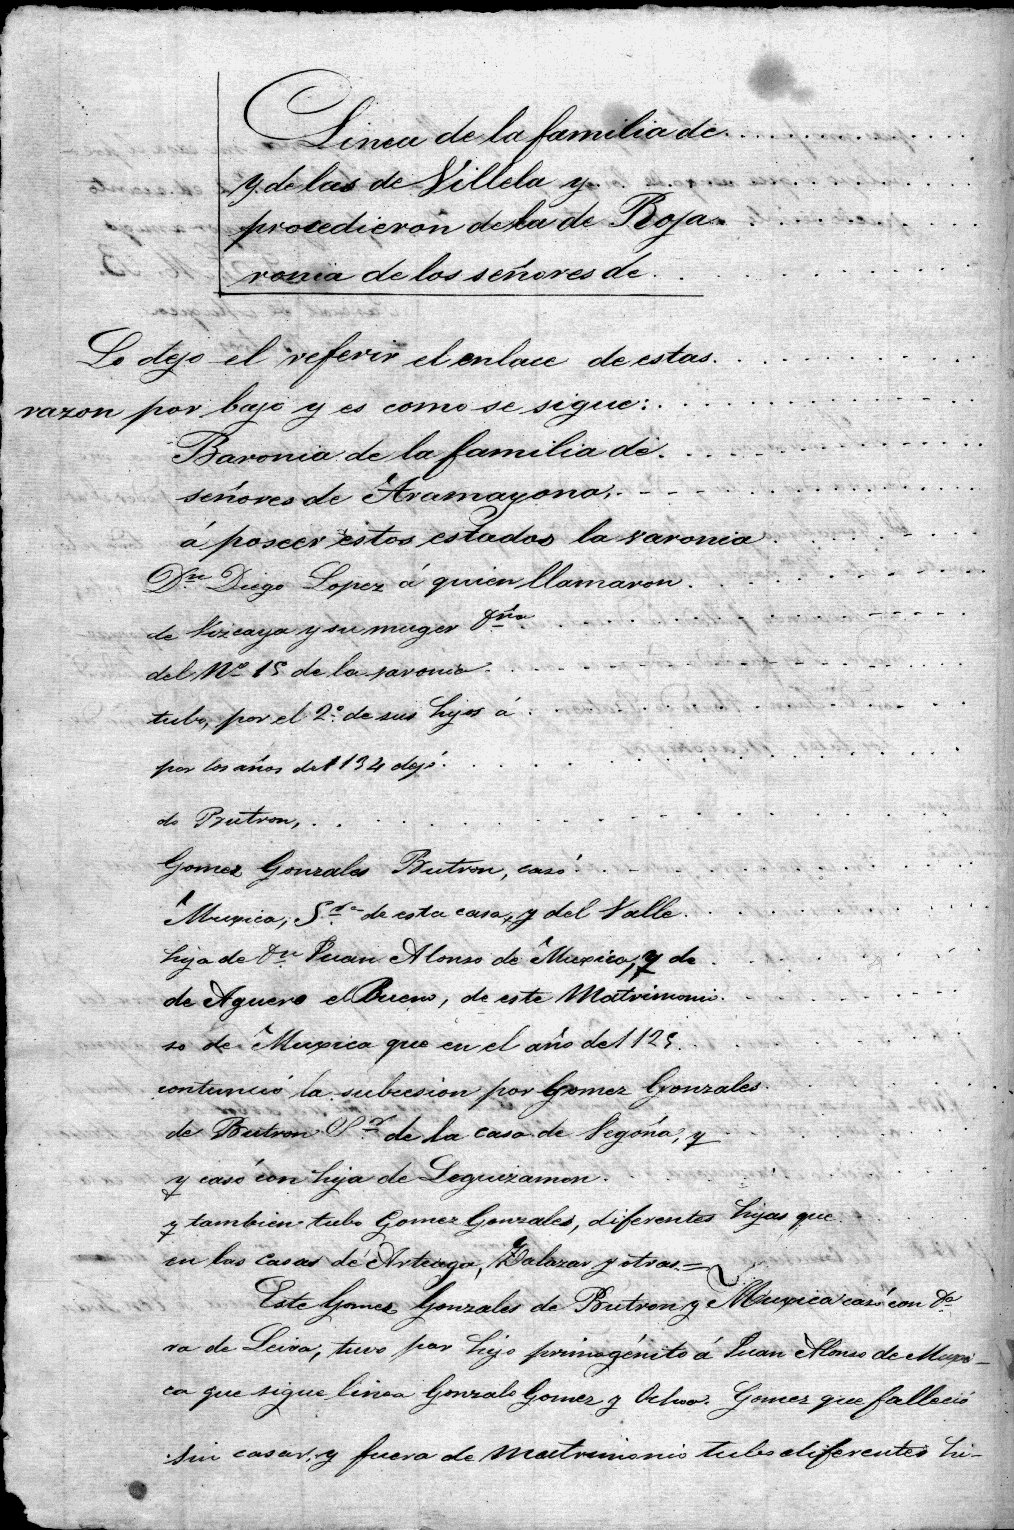 Linea de la familia de . . . . . . . . . .
y de las de Villela y . . . . . . . . . .
procedieron de la de Roja . . . . . . .
ronia de los señores de . . . . . . . .
Lo dejo el referir el enlace de estas . . . . . . .
razon por bajo y es como se sigue: . . . . . . . .
Baronia de la familia de . . . . . . . .
señores de Aramayona, . . . . . . . .
á poseer estos estados la varonia . . . . .
Dn Diego Lopez á quien llamaron . . . . . . .
de Vizcaya y su muger Dña . . . . . . .
del No 15 de la varonia . . . . . . . .
tubo, por el 2o de sus hijos á . . . . . . . .
por los años de 1134 dejó . . . . . . . .
do Butron, . . . . . . . .
Gomez Gonzales Butron, casó . . . . . . . .
Muxica, Sra de esta casa, y del Valle . . . . . .
hija de Dn Juan Alonso de Muxica, y de . . . . .
de Aguero el Bueno, de este Matrimonio . . . . .
so de Muxica que en el año de 1125 . . . . . .
contunuó la subcesion por Gomez Gonzales . . . .
de Butron Sr de la casa de Vegoña, y . . . . .
y casó con hija de Leguizamon . . . . . .
y tambien tubo Gomez Gonzales, diferentes hijas que
en las casas de Arteaga, Salazar y otras =
Este Gomez Gonzales de Butron y Muxica casó con Da
ra de Leiva, tuvo por hijo primogénito á Juan Alonso de Muxi-
ca que sigue linea Gonzalo Gomez y Ochoa Gomez que falleció
sin casar, y fuera de matrimonio tubo diferentes hi-